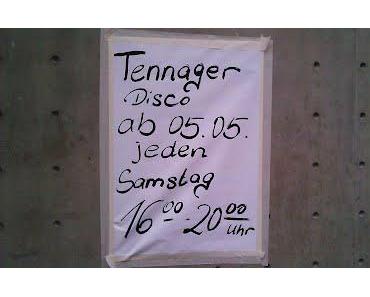 Tennager
Disco
ab 05.05.
jeden
Samstag
16⁰⁰-20⁰⁰
Uhr